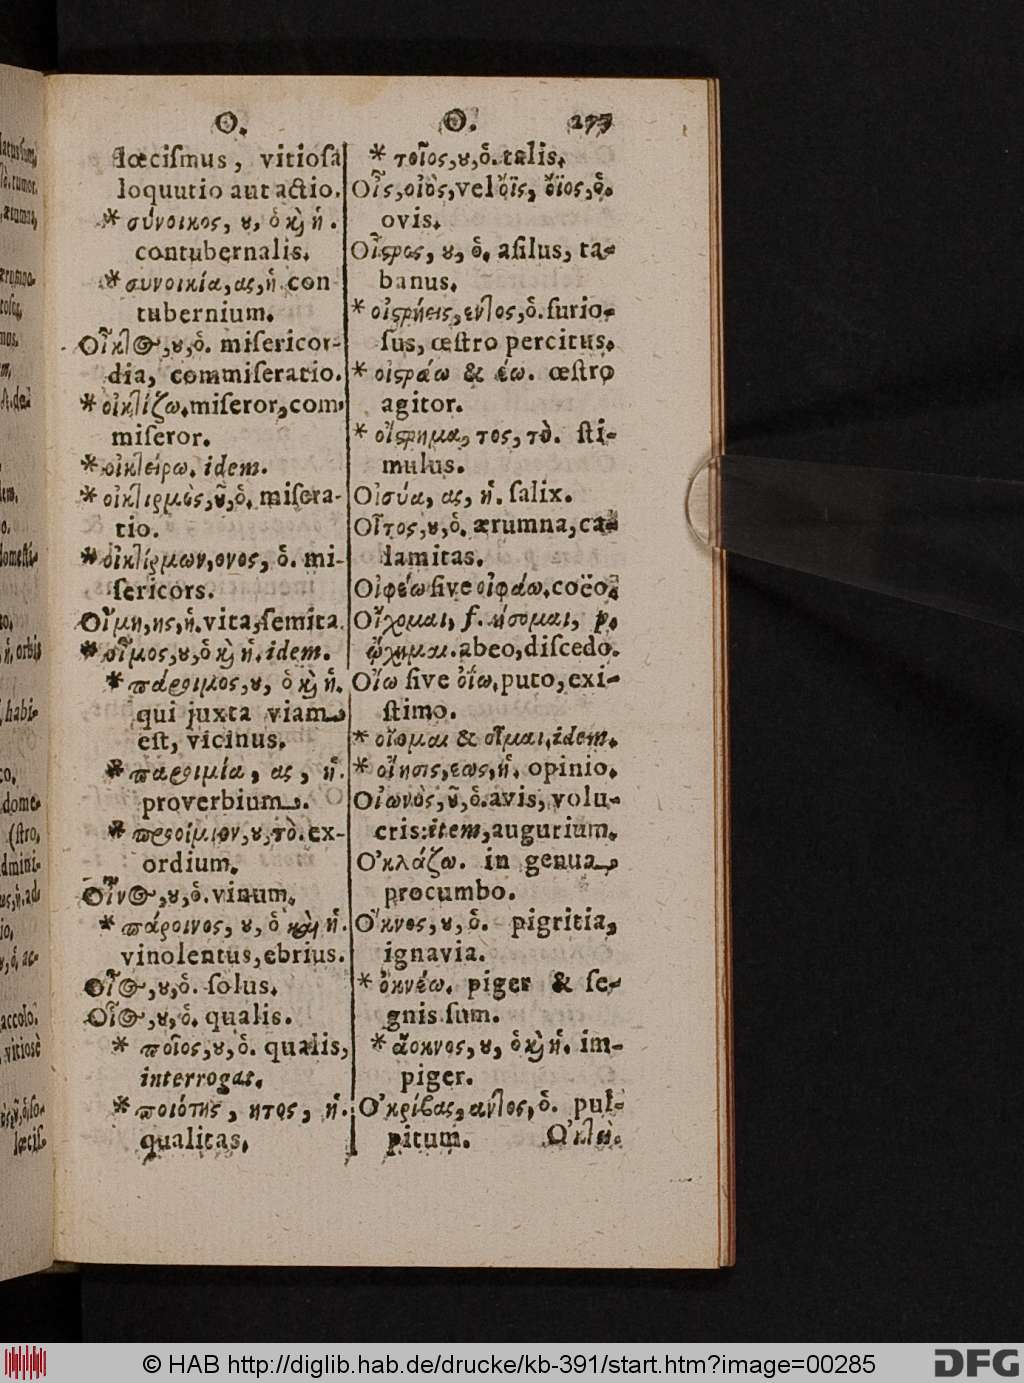 O.
lœcismus, vitiosa
loquutio aut actio.
* σύνοικος, ȣ, ὁ κ̀ ἡ.
contubernalis.
* συνοικία, ας, ἡ. con
tubernium.
Οἶκτος, ȣ, ὁ. misericor-
dia, commiseratio.
* οἰκτίζω. miseror, com-
miseror.
* οἰκτείρω. idem.
* οἰκτιρμὸς, ȣ̃, ὁ. misera-
tio.
* οἰκτίρμων, ονος, ὁ. mi-
sericors.
Οἴμη, ης, ἡ. vita, semita.
* οἶμος, ȣ, ὁ κ̀ ἡ. idem.
* πάροιμος, ȣ, ὁ κ̀ ἡ.
qui juxta viam
est, vicinus.
* παροιμία, ας, ἡ.
proverbium.
* προοίμιον, ȣ, τὸ. ex-
ordium.
Οἶνος, ȣ, ὁ. vinum.
* πάροινος, ȣ, ὁ καὶ ἡ.
vinolentus, ebrius.
Οἶος, ȣ, ὁ. solus.
Οἷος, ȣ, ὁ. qualis.
* ποῖος, ȣ, ὁ. qualis,
interrogat.
* ποιότης, ητος, ἡ.
qualitas.
O. 277
* τοῖος, ȣ, ὁ. talis.
Οἶς, οἰὸς, vel ὄϊς, ὄϊος, ὁ.
ovis.
Οἶϛρος, ȣ, ὁ. asilus, ta-
banus.
* οἰϛρήεις, εντος, ὁ. furio-
sus, œstro percitus.
* οἰϛράω & έω. œstro
agitor.
* οἴϛρημα, τος, τὸ. sti-
mulus.
Οἰσύα, ας, ἡ. salix.
Οἶτος, ȣ, ὁ. ærumna, ca-
lamitas.
Οἰφέω sive οἰφάω. coëo.
Οἴχομαι, f. ήσομαι, p.
ᾤχημαι. abeo, discedo.
Οἴω sive ὀΐω. puto, exi-
stimo.
* οἴομαι & οἶμαι. idem.
* οἴησις, εως, ἡ. opinio.
Οἰωνὸς, ȣ̃, ὁ. avis, volu-
cris: item, augurium.
Ὀκλάζω. in genua
procumbo.
Ὄκνος, ȣ, ὁ. pigritia,
ignavia.
* ὀκνέω. piger & se-
gnis sum.
* ἄοκνος, ȣ, ὁ κ̀ ἡ. im-
piger.
Ὀκρίβας, αντος, ὁ. pul-
pitum. Ὀκτὼ.
© HAB http://diglib.hab.de/drucke/kb-391/start.htm?image=00285
DFG